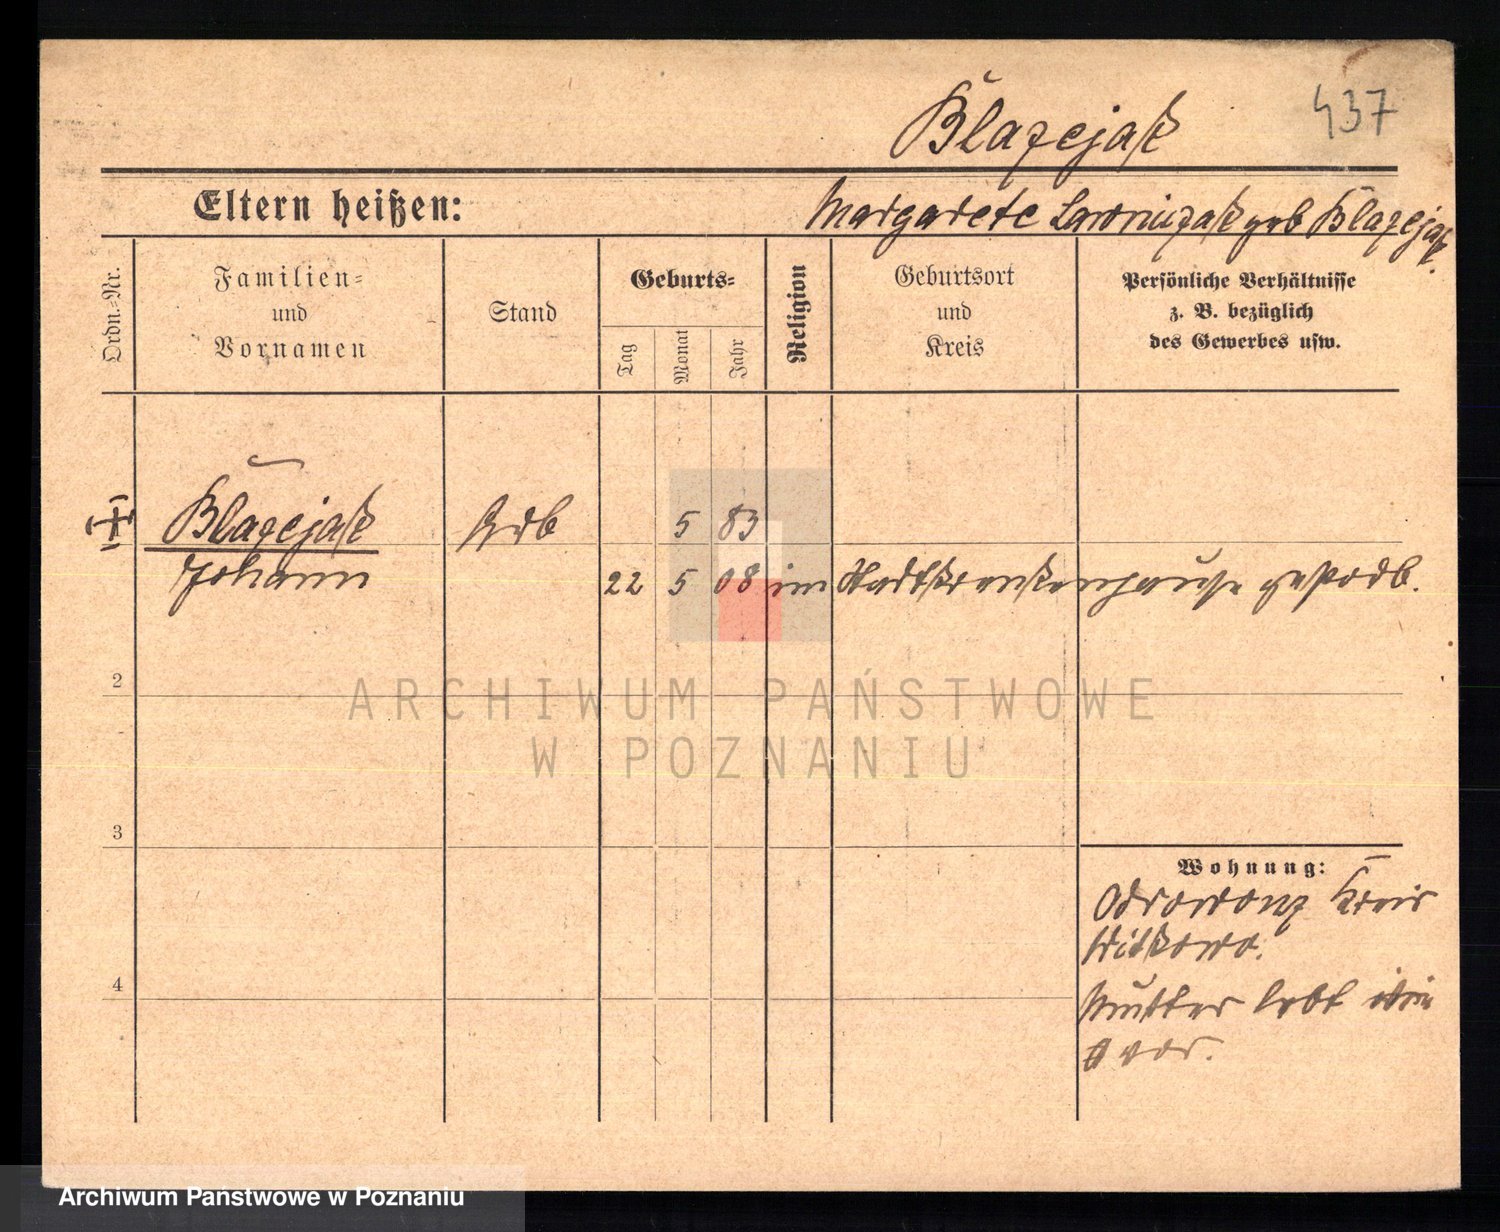 Blazejak
437
Eltern heißen:
Margarete Lawniczak geb Blazejak.
Ordn.-Nr.
Familien- und Vornamen
Stand
Geburts-
Tag
Monat
Jahr
Religion
Geburtsort und Kreis
Persönliche Verhältnisse
z. B. bezüglich
des Gewerbes usw.
Blazejak Arb 5 83
Johann 22 5 08 im Stadtkrankenhause gestorb.
2
3
4
Wohnung:
Odrowonz Kreis
Witkowo.
Mutter lebt
ARCHIWUM PAŃSTWOWE
W POZNANIU
Archiwum Państwowe w Poznaniu